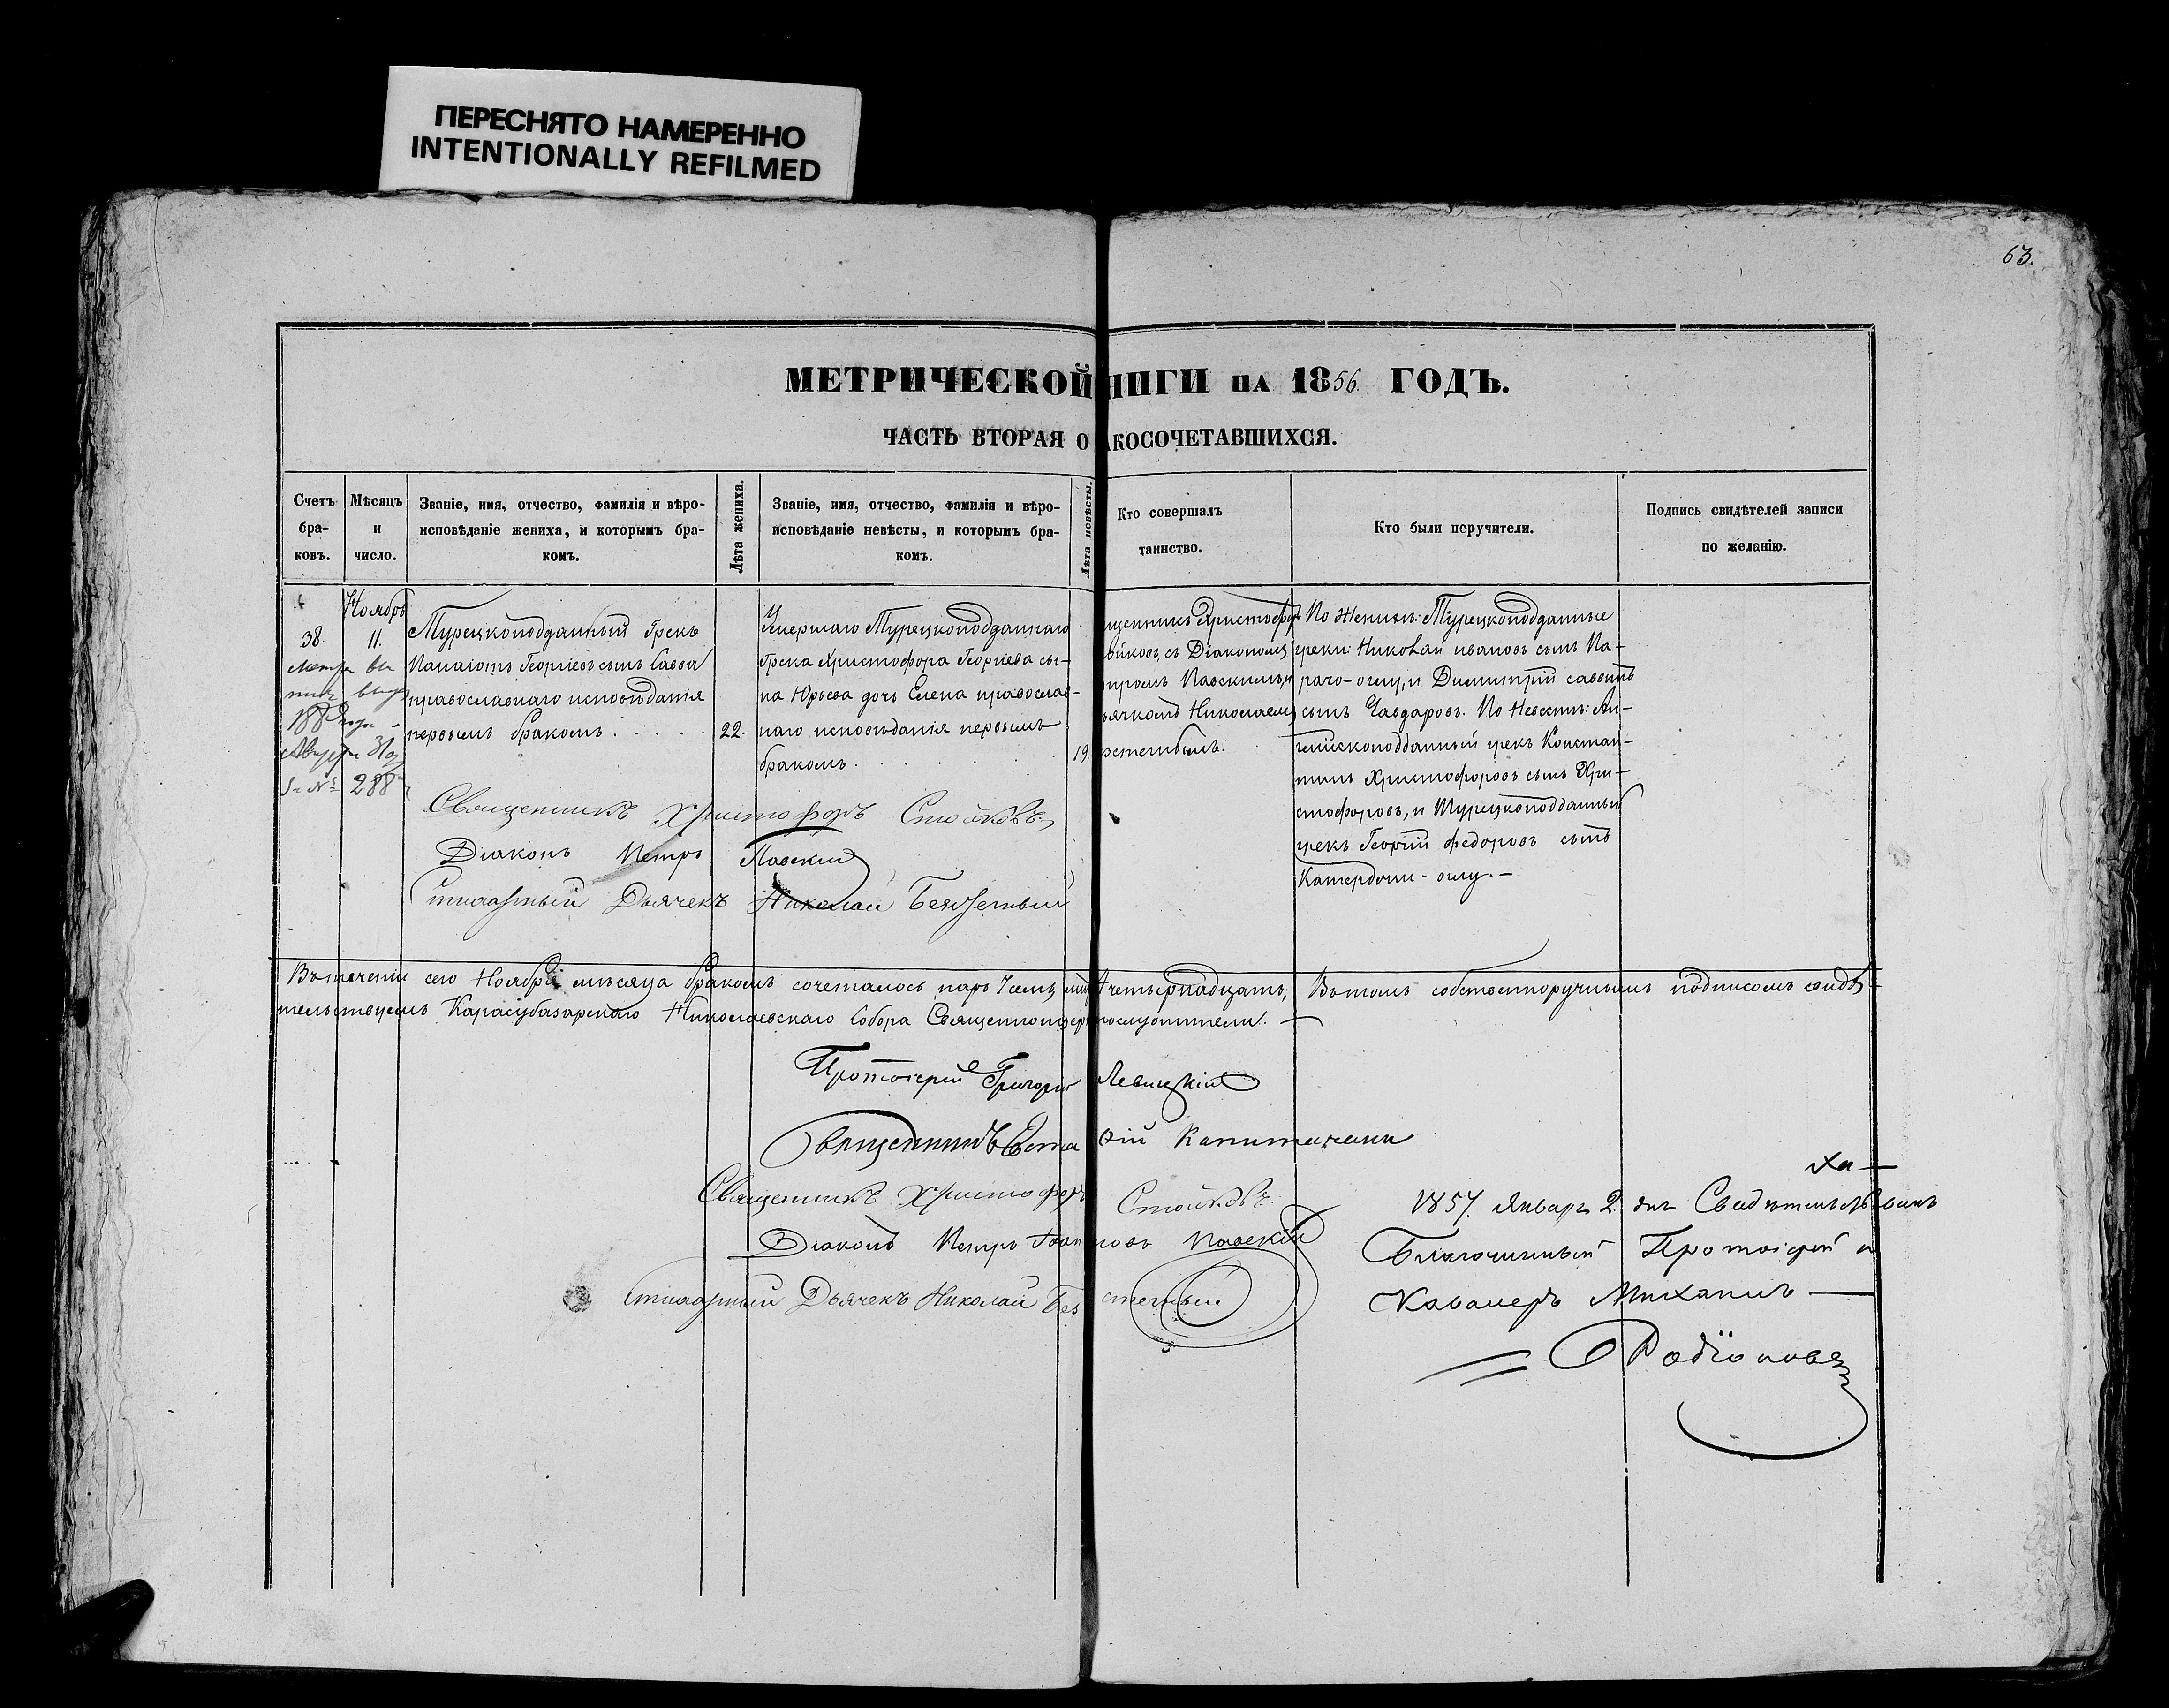 ПЕРЕСНЯТО НАМЕРЕННО
INTENTIONALLY REFILMED
63.
МЕТРИЧЕСКОЙ НИГИ НА 1856. ГОДЪ.
ЧАСТЬ ВТОРАЯ О АКОСОЧЕТАВШИХСЯ.
Счетъ бра-ковъ.
Мѣсяцъ и число.
Званіе, имя, отчество, фамилія и вѣро-
исповѣданіе жениха, и которымъ бра-
комъ.
Лѣта жениха.
Званіе, имя, отчество, фамилія и вѣро-
исповѣданіе невѣсты, и которымъ бра-
комъ.
Лѣта невѣсты.
Кто совершалъ
таинство.
Кто были поручители.
Подпись свидѣтелей записи
по желанію.
38.
Ноябрь
11.
288
Турецкоподданный Грекъ
Панаіотъ Георгіевъ сынъ Савва
православнаго исповѣданія
первымъ бракомъ . . . . .
22.
Умершаго Турецкоподданнаго
Грека Христофора Георгіева сы-
на Юрьева дочь Елена православ-
наго исповѣданія первымъ
бракомъ . . . . . .
19.
щенникъ Христофоръ
ойковъ, съ Діакономъ
тромъ Павскимъ, и
ьячкомъ Николаемъ
зстетнымъ.
По Женихѣ: Турецкоподданные
греки: Николай ивановъ сынъ Па-
раго-оглу, и Димитрій саввинъ
сынъ Чавдаровъ. По Невѣстѣ: Ан-
глископодданный грекъ Констан-
тинъ Христофоровъ сынъ Хри-
стофоровъ, и Турецкоподданный
грекъ Георгій федоровъ сынъ
Священникъ Христофоръ Стойковъ
Діаконъ Петръ Павскій
Дьячекъ Николай
Въ теченіи сего Ноября мѣсяца бракомъ сочеталось паръ 7 семь, четырнадцать, Въ томъ собственноручнымъ подписомъ свидѣ-
тельствуемъ Карасубазарскаго Николаевскаго Собора Священноцерковнослужители. —
Протоіерей Григорій Левицкій
Священникъ
Священникъ Христофоръ Стойковъ
Діаконъ Петръ Іоанновъ Павскій
Дьячекъ Николай
1857. Январь 2. дня Свидѣтельствовалъ
Благочинный Протоіерей и
Кавалеръ Михаилъ —
Родіоновъ